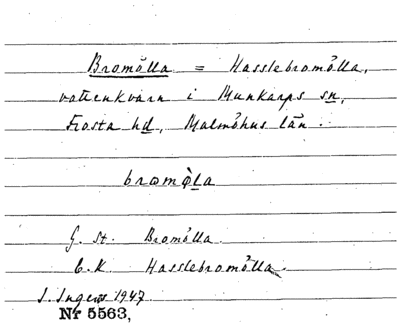 Bromölla = Hasslebromölla,
vattenkvarn i Munkarps sn,
Frosta hd, Malmöhus län.
bromø̀la
G. st. Bromölla.
E. K. Hasslebromölla.
I. Ingers 1947
Nr 5563,